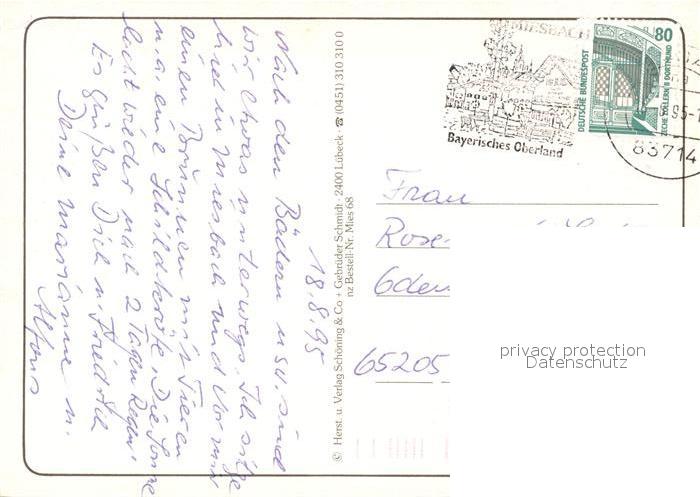 18.8.95
Nach den Bädern usw. sind
wir etwas unterwegs. Ich sitze
hier in Miesbach und vor mir
einen Brunnen mit Tieren
u. a. eine Schildkröte. Die Sonne
lacht wieder nach 2 Tagen Regen!
Es grüßen Dich u. Friedrich
Deine Marianne u.
Alfons
© Herst. u. Verlag Schöning & Co + Gebrüder Schmidt · 2400 Lübeck · ☎ (0451) 310 310 0
nz Bestell-Nr. Mies 68
MIESBACH
Bayerisches Oberland
DEUTSCHE BUNDESPOST
80
ZECHE ZOLLERN II DORTMUND
95-1
83714
Frau
Rose-
65205
privacy protection
Datenschutz